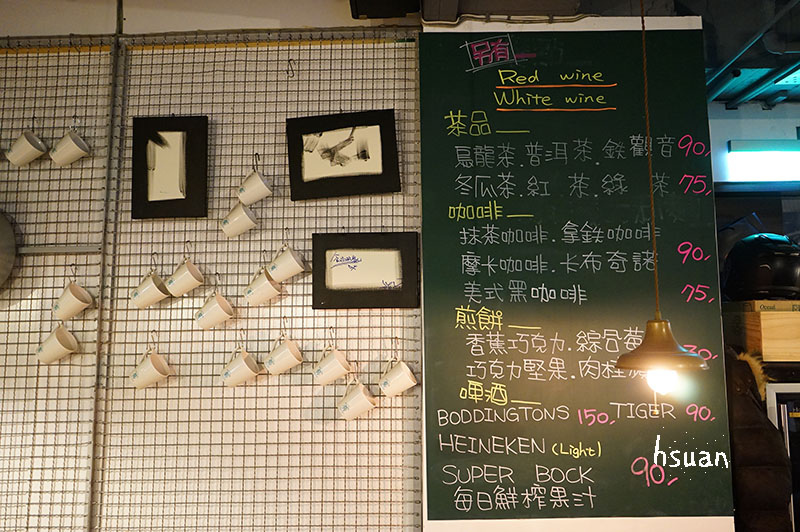 另有
Red wine
White wine
茶品
烏龍茶.普洱茶.鉄觀音 90,
冬瓜茶.紅 茶.綠 茶 75,
咖啡
抹茶咖啡.拿鉄咖啡
摩卡咖啡.卡布奇諾 90,
美式黑咖啡 75,
煎餅
香蕉巧克力.綜合莓
巧克力堅果.肉桂
啤酒
BODDINGTONS 150, TIGER 90,
HEINEKEN (Light)
SUPER BOCK 90,
每日鮮榨果汁
hsuan